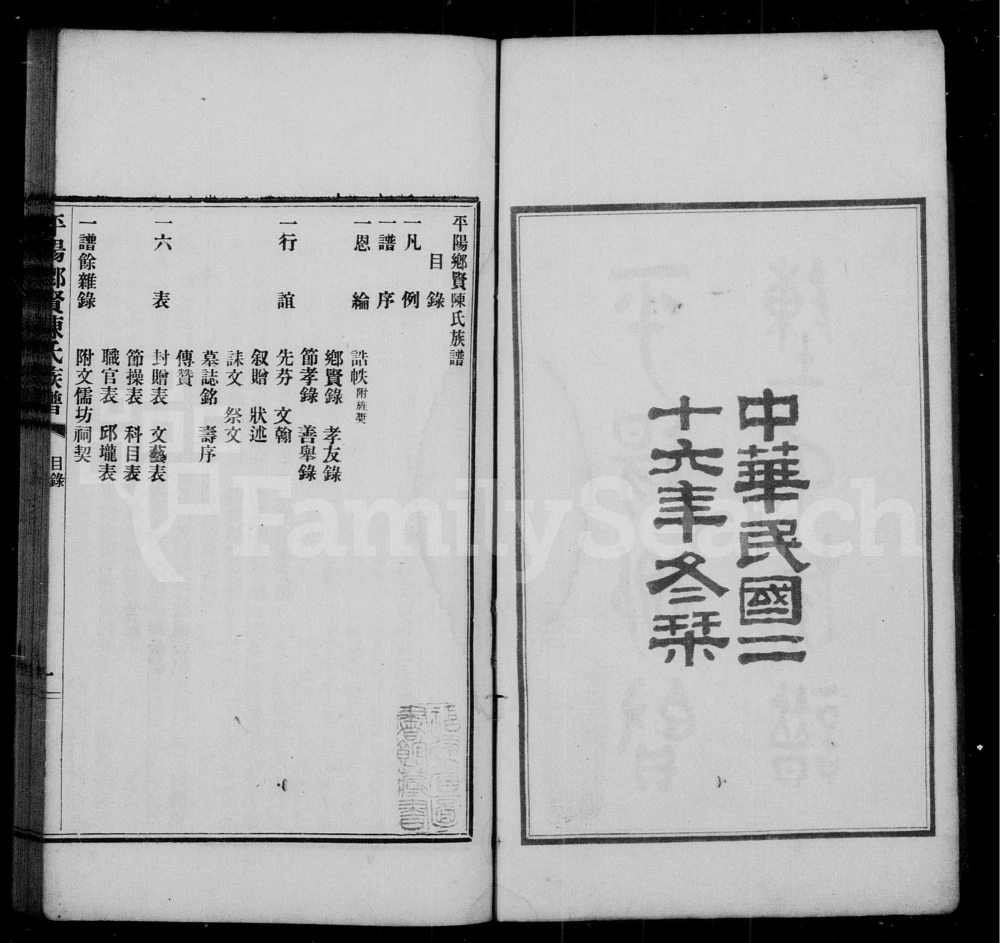 中華民國二
十六年冬栞
平陽鄉賢陳氏族譜
目錄
一凡例
一譜序
一恩綸
誥帙附旌獎
鄉賢錄 孝友錄
節孝錄 善舉錄
一行誼
先芬 文翰
叙贈 狀述
誄文 祭文
墓誌銘 壽序
傳贊
一六表
封贈表 文藝表
節操表 科目表
職官表 邱壠表
一譜餘雜錄
附文儒坊祠契
平陽鄉賢陳氏族譜
目錄
一
FamilySearch